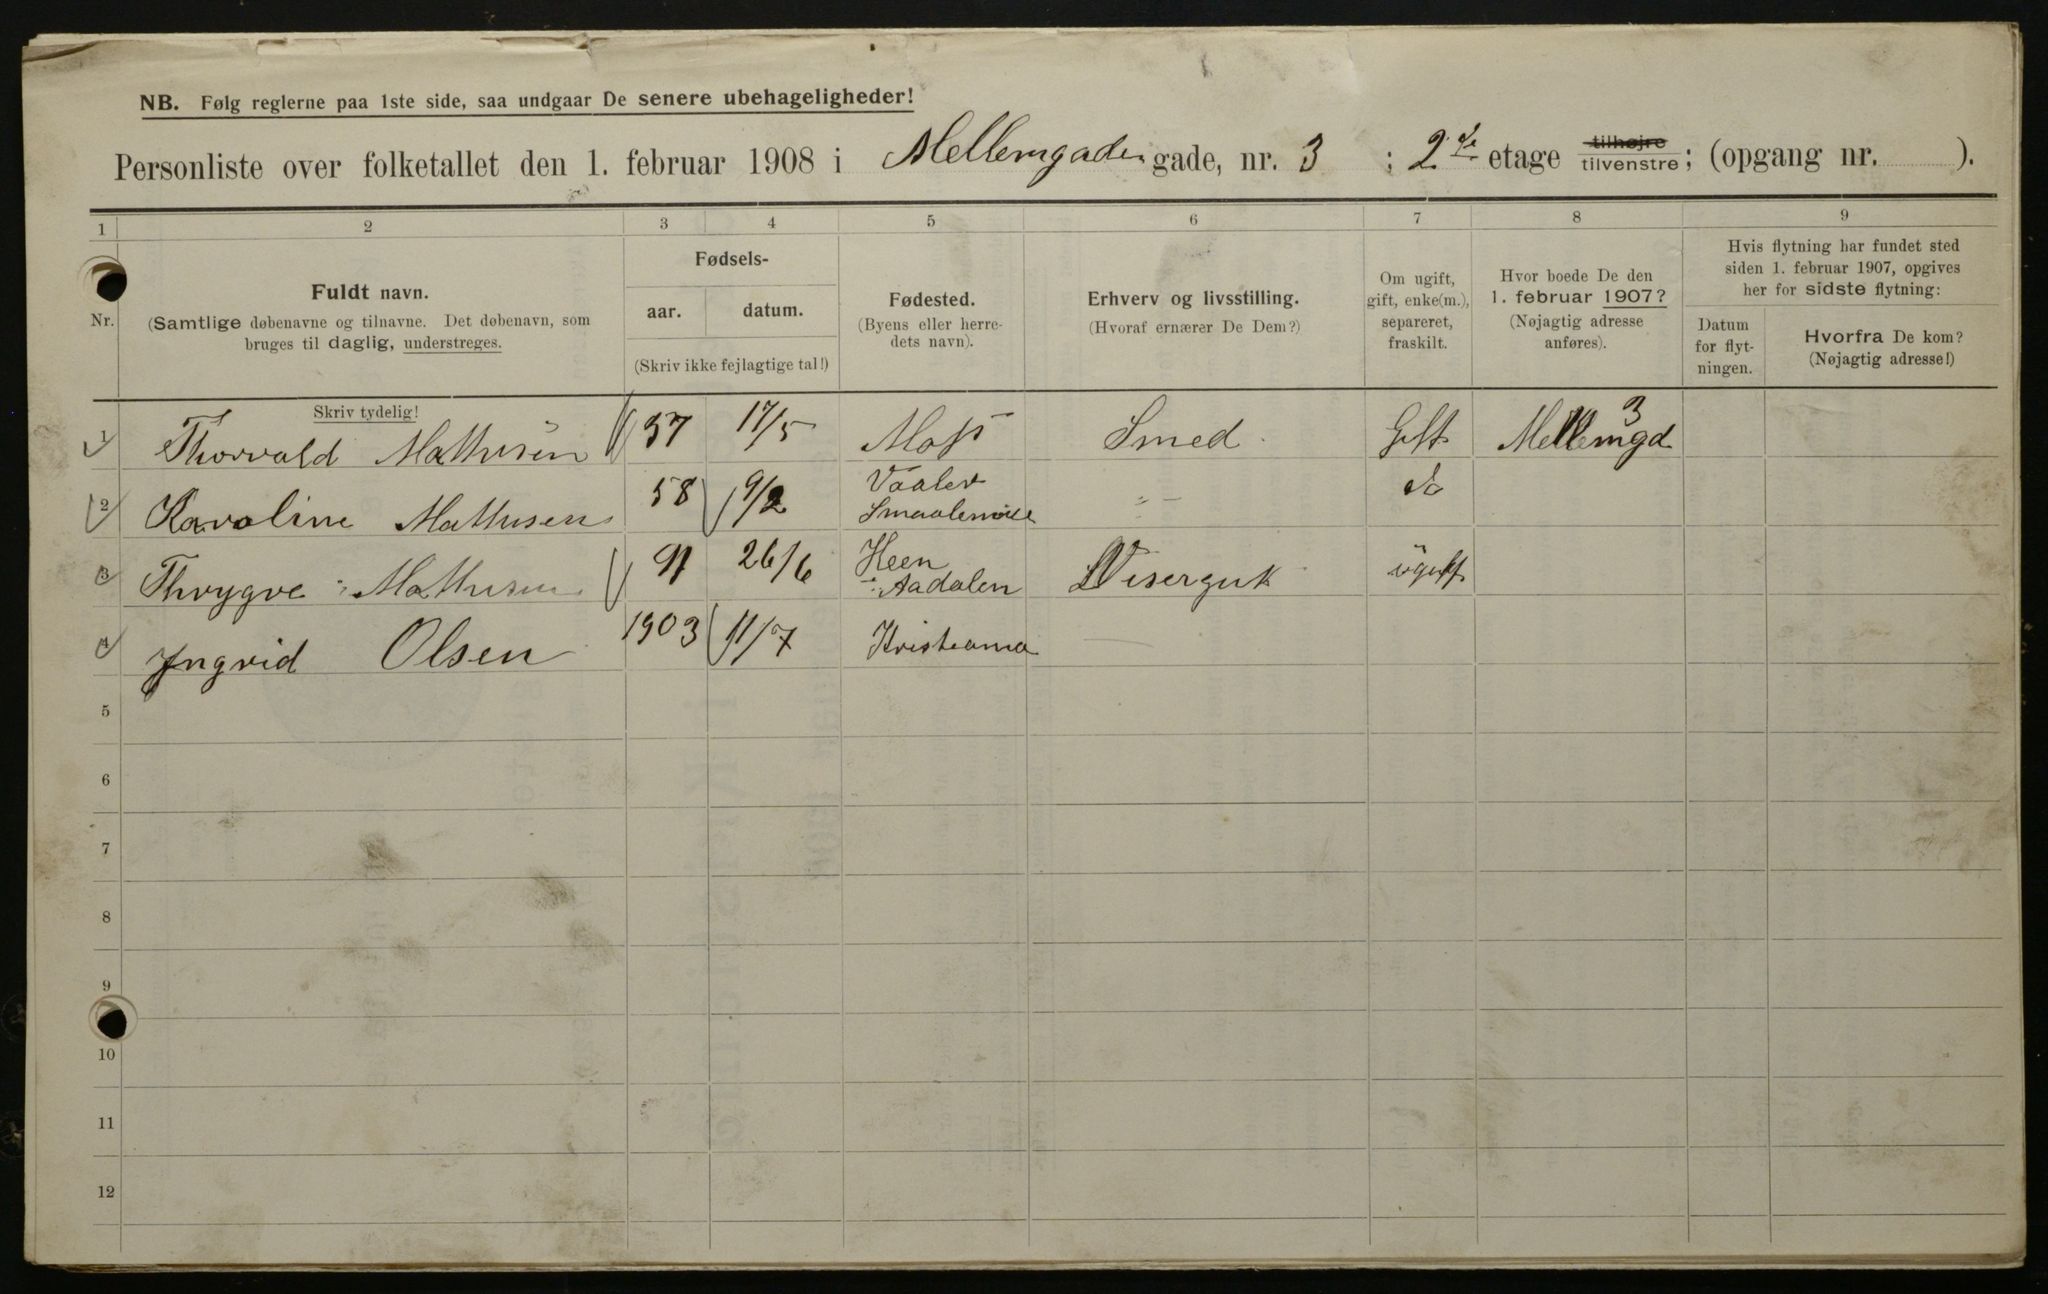 NB. Følg reglerne paa 1ste side, saa undgaar De senere ubehageligheder!
Personliste over folketallet den 1. februar 1908 i Mellemgaden gade, nr. 3 ; 2de etage tilhøjre tilvenstre; (opgang nr. ).
1 2 3 4 5 6 7 8 9
Nr.
Fuldt navn.
(Samtlige døbenavne og tilnavne. Det døbenavn, som
bruges til daglig, understreges.
Skriv tydelig!
Fødsels-
aar. datum.
(Skriv ikke fejlagtige tal!)
Fødested.
(Byens eller herre-
dets navn).
Erhverv og livsstilling.
(Hvoraf ernærer De Dem?)
Om ugift,
gift, enke(m.),
separeret,
fraskilt.
Hvor boede De den
1. februar 1907?
(Nøjagtig adresse
anføres).
Hvis flytning har fundet sted
siden 1. februar 1907, opgives
her for sidste flytning:
Datum
for flyt-
ningen.
Hvorfra De kom?
(Nøjagtig adresse!)
1 Thorvald Mathisen 57 17/5 Moss Smed Gift Mellemgd 3
2 Karoline Mathisen 58 9/2 Vaaler Smaalenene -"- do
3 Thrygve Mathisen 91 26/6 Heen Aadalen Visergut ugift
4 Yngrid Olsen 1903 11/7 Kristiania
5
6
7
8
9
10
11
12